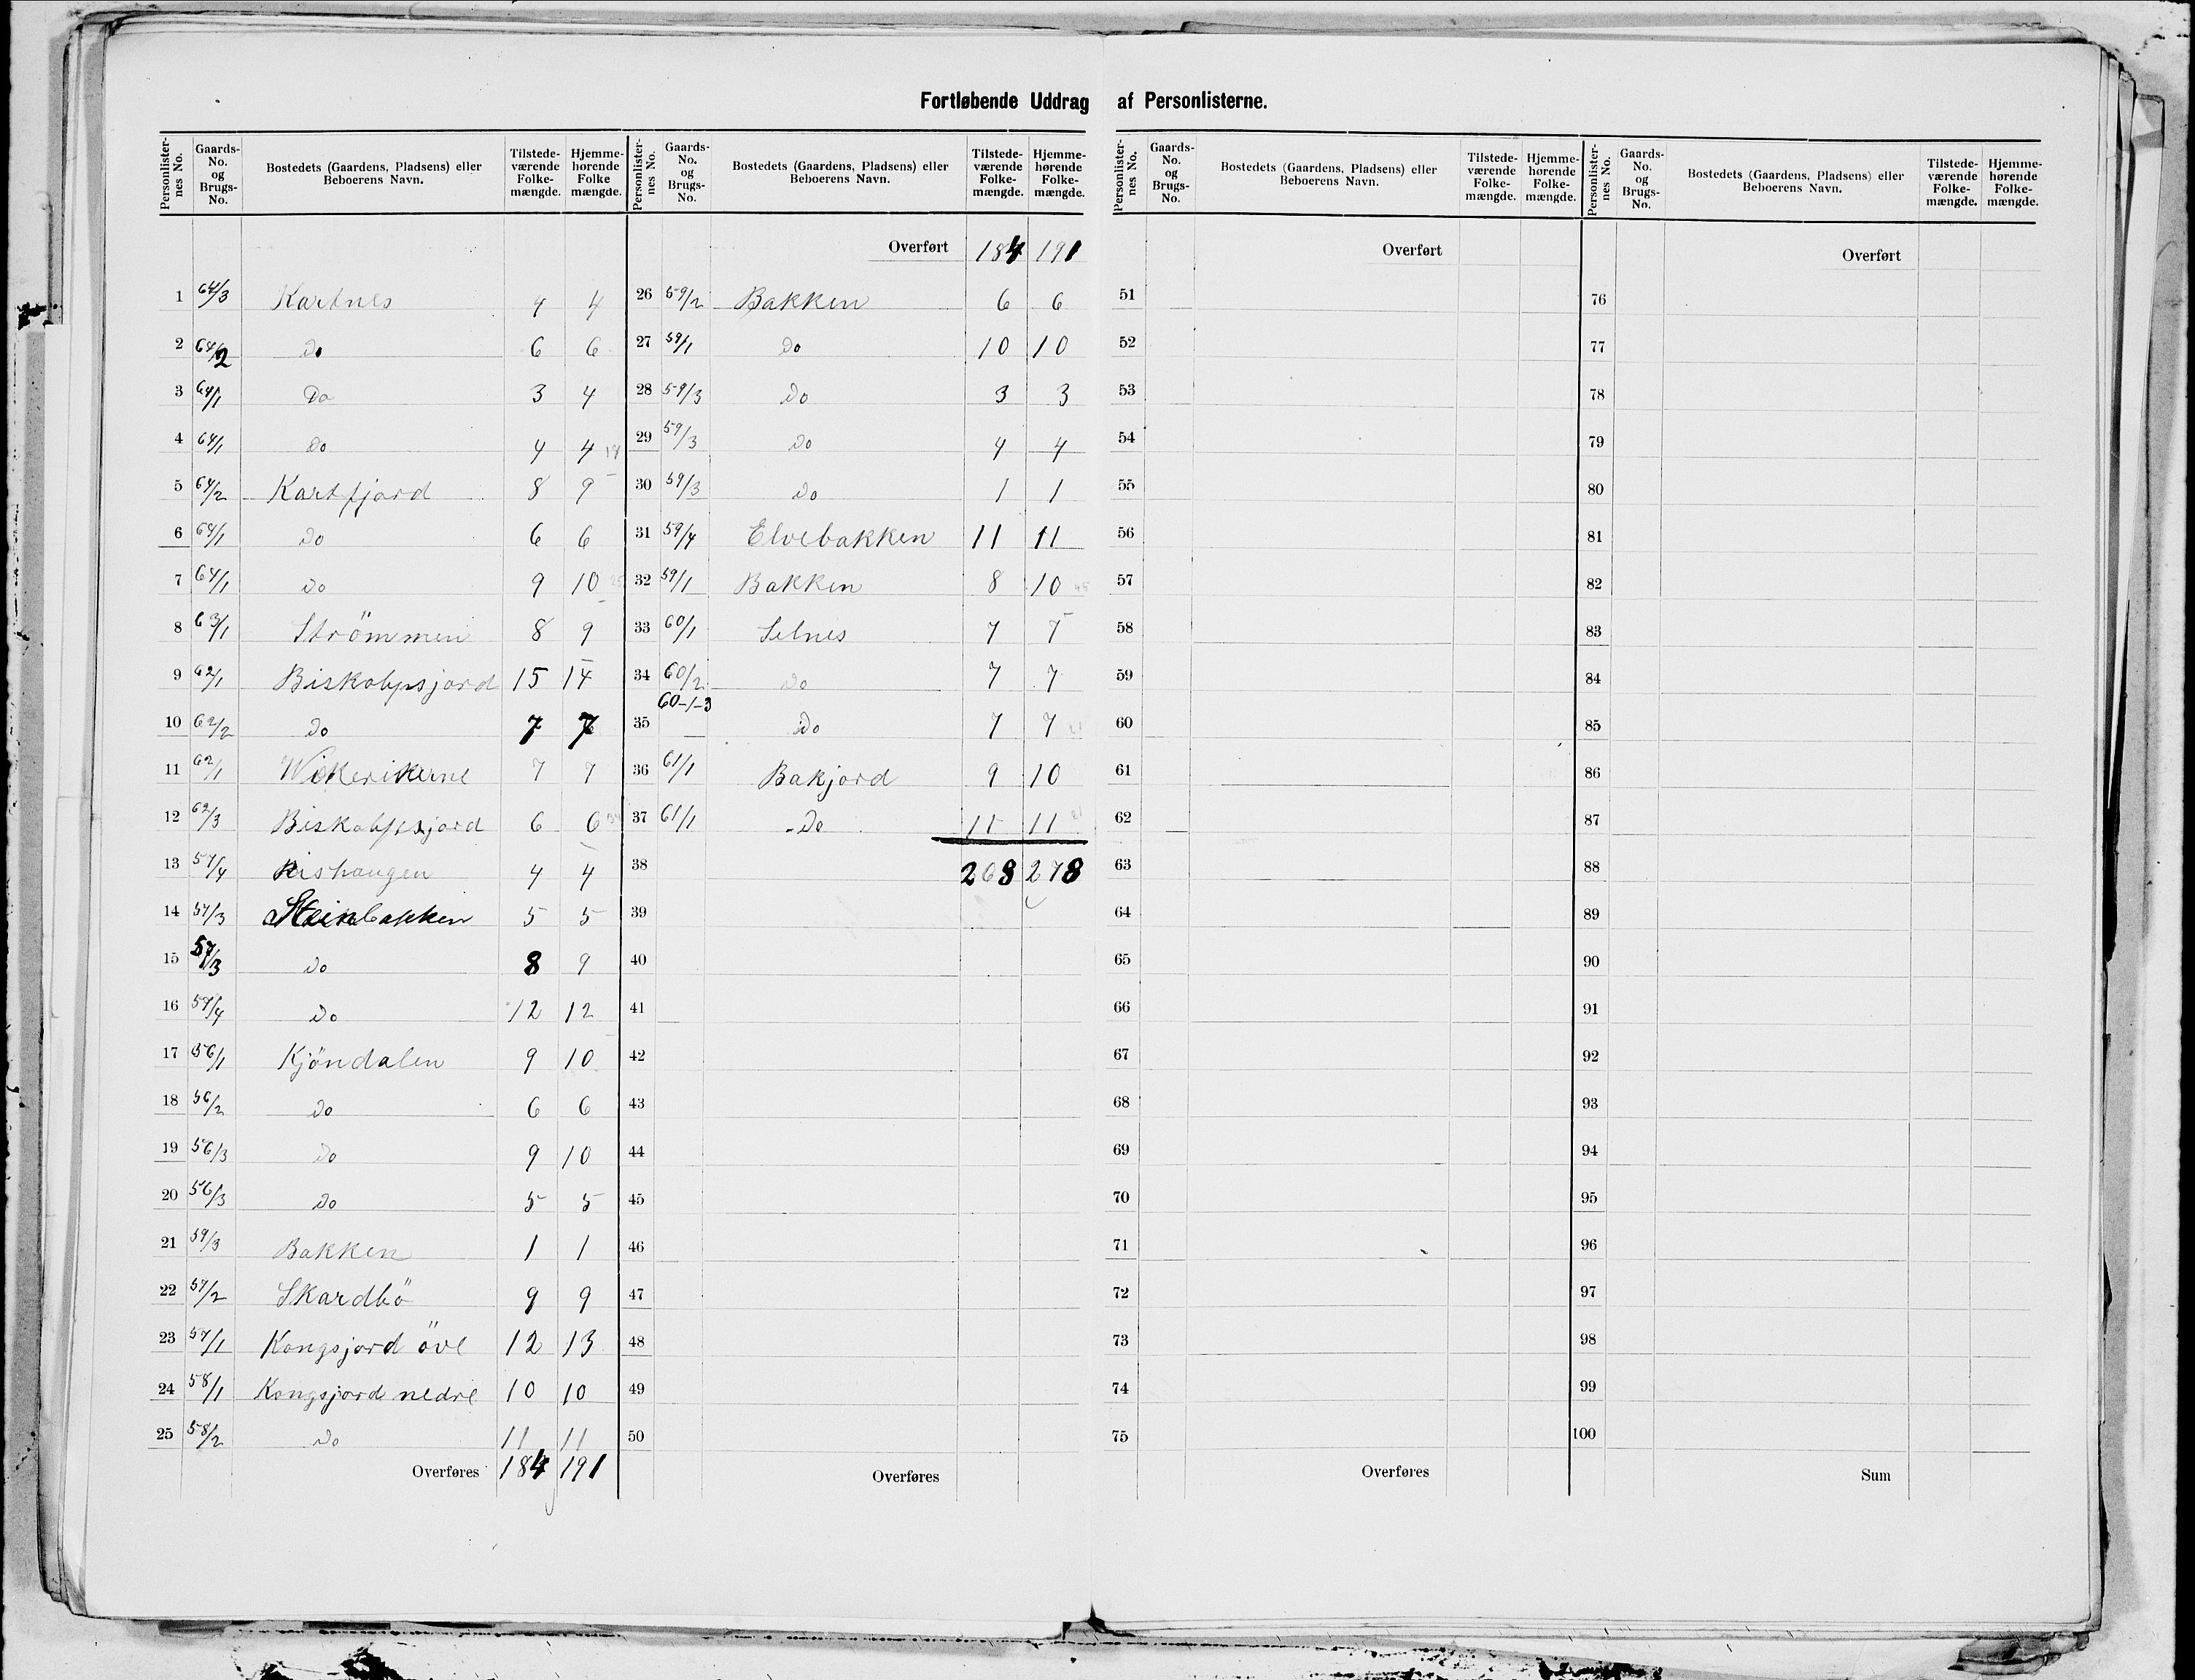 Fortløbende Uddrag af Personlisterne.
Personlisternes No. Gaards-No. og Brugs-No. Bostedets (Gaardens, Pladsens) eller Beboerens Navn. Tilstedeværende Folkemængde. Hjemmehørende Folkemængde.
1 64/3 Kartnes 4 4
2 64/2 Do 6 6
3 64/1 Do 3 4
4 64/1 Do 4 4 18
5 64/2 Kartfjord 8 9
6 64/1 Do 6 6
7 64/1 Do 9 10 25
8 63/1 Strömmen 8 9
9 62/1 Biskopsjord 15 14
10 62/2 Do 7 7
11 62/1 7 7
12 62/3 Biskopsjord 6 6 34
13 57/4 Rishaugen 4 4
14 57/3 Steinbakken 5 5
15 57/3 Do 8 9
16 57/4 Do 12 12
17 56/1 Kjöndalen 9 10
18 56/2 Do 6 6
19 56/3 Do 9 10
20 56/3 Do 5 5
21 59/3 Bakken 1 1
22 57/2 Skardbö 9 9
23 57/1 Kongsjord övl 12 13
24 58/1 Kongsjord nedre 10 10
25 58/2 Do 11 11
Overføres 184 191
Personlisternes No. Gaards-No. og Brugs-No. Bostedets (Gaardens, Pladsens) eller Beboerens Navn. Tilstedeværende Folkemængde. Hjemmehørende Folkemængde.
Overført 184 191
26 59/2 Bakken 6 6
27 59/1 Do 10 10
28 59/3 Do 3 3
29 59/3 Do 4 4
30 59/3 Do 1 1
31 59/4 Elvebakken 11 11
32 59/1 Bakken 8 10 45
33 60/1 Selnes 7 7
34 60/2 Do 7 7
35 60-1-3 Do 7 7 21
36 61/1 Bakjord 9 10
37 61/1 Do 11 11 21
38 268 278
39
40
41
42
43
44
45
46
47
48
49
50
Overføres
Personlisternes No. Gaards-No. og Brugs-No. Bostedets (Gaardens, Pladsens) eller Beboerens Navn. Tilstedeværende Folkemængde. Hjemmehørende Folkemængde.
Overført
51
52
53
54
55
56
57
58
59
60
61
62
63
64
65
66
67
68
69
70
71
72
73
74
75
Overføres
Personlisternes No. Gaards-No. og Brugs-No. Bostedets (Gaardens, Pladsens) eller Beboerens Navn. Tilstedeværende Folkemængde. Hjemmehørende Folkemængde.
Overført
76
77
78
79
80
81
82
83
84
85
86
87
88
89
90
91
92
93
94
95
96
97
98
99
100
Sum